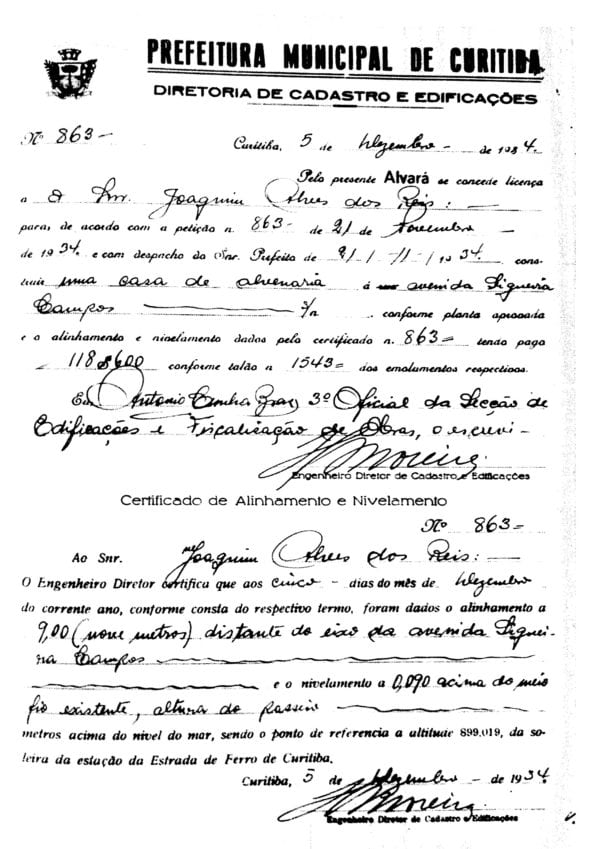 PREFEITURA MUNICIPAL DE CURITIBA
DIRETORIA DE CADASTRO E EDIFICAÇÕES
Nº 863-
Curitiba, 5 de Dezembro - de 1934.
Pelo presente Alvará se concede licença
a O Snr. Joaquim Alves dos Reis: —
para, de acordo com a petição n. 863- de 21 de Novembro
de 1934. e com despacho do Snr. Prefeito de 21/-11-/1934. cons-
truir uma casa de alvenaria á avenida Siqueira
Campos — s/n . conforme planta aprovada
e o alinhamento e nivelamento dados pelo certificado n. 863= tendo pago
118$600 conforme talão n 1543= dos emolumentos respectivos.
Eu, Antonio 3º Oficial da Secção de
Edificações e Fiscalização de Obras, o escrevi-
Moreira
Engenheiro Diretor de Cadastro e Edificações
Certificado de Alinhamento e Nivelamento
Nº 863=
Ao Snr. Joaquim Alves dos Reis: —
O Engenheiro Diretor certifica que aos cinco - dias do mês de Dezembro
do corrente ano, conforme consta do respectivo termo, foram dados o alinhamento a
9,00 (nove metros) distante do eixo da avenida Siquei-
ra Campos —
e o nivelamento a 0,090 acima do meio
fio existente, altura do passeio
metros acima do nivel do mar, sendo o ponto de referencia a altitude 899,019, da so-
leira da estação da Estrada de Ferro de Curitiba.
Curitiba, 5 de Dezembro - de 1934.
Moreira
Engenheiro Diretor de Cadastro e Edificações